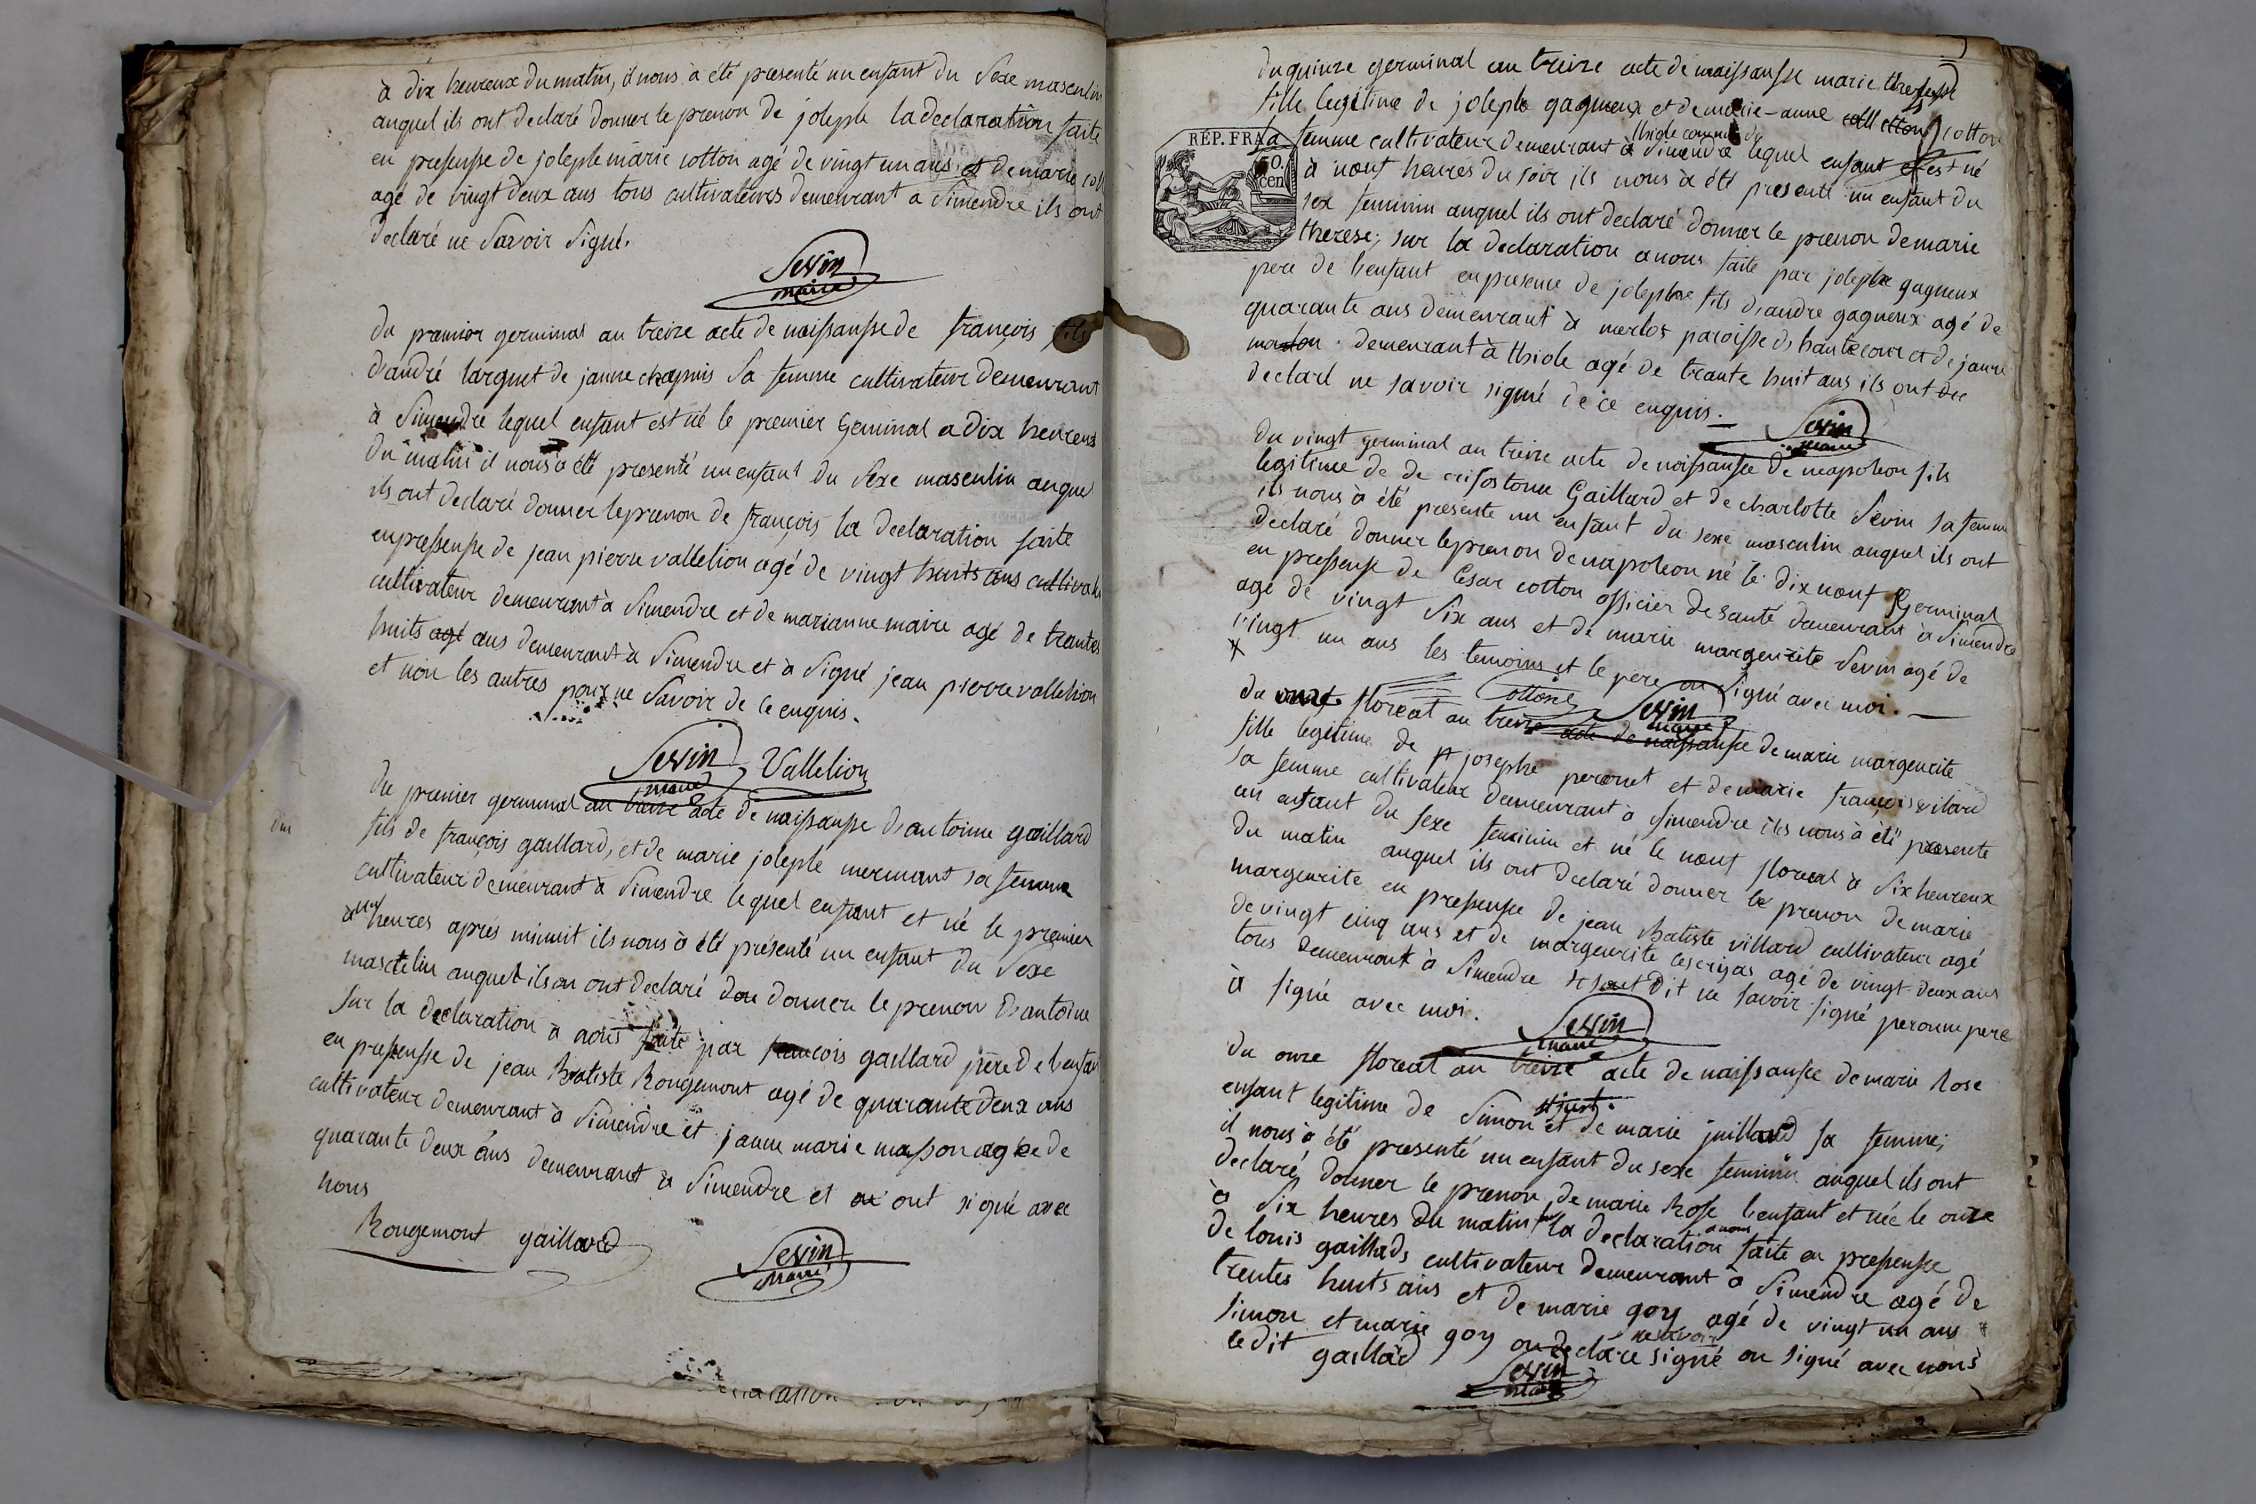 à dix heureux du matin, il nous à été presenté un enfant du Sexe masculin
auquel ils ont declaré donner le prenon de joseph la declaration faite
en presensse de joseph marie cotton agé de vingt un ans et de marie
agé de vingt deux ans tous cultivateurs demeurant a Simendre ils ont
declaré ne Savoir Signé.
Sevin
maire
du premier germinal an treize acte de naissansse de françois fils
d'andré larguet de janne chapuis Sa femme cultivateur demeurant
à Simendre lequel enfant est né le premier Germinal a dix heureux
du matin il nous à été presenté un enfant du Sexe masculin auquel
ils ont declaré donner le prenon de françois la declaration faite
en presensse de jean pierre vallelion agé de vingt huits ans
cultivateur demeurant à Simendre et de marianne maire agé de trantes
huits agé ans demeurant à Simendre et à Signé jean pierre vallelion
et non les autres pour ne Savoir de ce enquis.
Sevin Vallelion
maire
du premier germinal an treize acte de naissansse d'antoine gaillard
fils de françois gaillard, et de marie joseph mermant sa femme
cultivateur demeurant à Simendre lequel enfant et né le premier
à heures aprés minuit ils nous à été présenté un enfant du Sexe
masculin auquel ils on ont declaré donner le prenon d'antoine
Sur la declaration à nous faite par françois gaillard père de l'enfan
en presensse de jean Batiste Rougemont agé de quarante deux ans
cultivateur demeurant à Simendre et janne marie masson agée de
quarante deux ans demeurant à Simendre et ont signé avec
nous
Rougemont gaillard
Sevin
maire
du quinze germinal an treize acte de naissansse marie theresse
fille legitime de joseph gagneux et de marie-anne cotton
REP. FRA
50.
cen
sa femme cultivateur demeurant à thiole commune de Simendre lequel enfant est né
à neuf heures du soir ils nous à été presenté un enfant du
sex feminin auquel ils ont declaré donner le prenon de marie
therese; sur la declaration a nous faite par joseph gagneux
pere de l'enfant en presence de joseph fils d'andre gagneux agé de
quarante ans demeurant à merlos paroisse d hautecour et de janne
masson. demeurant à thiole agé de trante huit ans ils ont
declaré ne savoir signé de ce enquis.
Sevin
maire
du vingt germinal an treize acte de naissansse de napoleon fils
legitime de de crisostome Gaillard et de charlotte Sevin sa femme
ils nous à été presente un enfant du sexe masculin auquel ils ont
declaré donner le prenon de napoleon né le dix neuf Germinal
en presensse de Cesar cotton officier de santé demeurant à Simendre
agé de vingt Six ans et de marie margeurite Sevin agé de
vingt un ans les temoins et le père on Signé avec moi.
Cotton Sevin
maire
du onze floreal an treize acte de naissansse de marie margeurite
fille legitime de josephe peronet et de marie françoise vilard
sa femme cultivateur demeurant à simendre ils nous à été presente
un enfant du sexe feminin et né le neuf floreal à Six heureux
du matin auquel ils ont declaré donner le prenon de marie
margeurite en presensse de jean Batiste villard cultivateur agé
de vingt cinq ans et de margeurite agé de vingt deux ans
tous demeurant à Simendre dit ne savoir signé peronne pere
à signé avec moi.
Sevin
maire
du onze floreal an treize acte de naissansse de marie Rose
enfant legitime de Simon et de marie juillard sa femme;
il nous à été presenté un enfant du sexe feminin auquel ils ont
declaré donner le prenon de marie Rosse l'enfant et née le onze
à Six heures du matin la declaration a nous faite en presensse
de louis gaillads cultivateur demeurant à Simendre agé de
trentes huits ans et de marie goy agé de vingt un ans
simon et marie goy on declare ne savoir signé on signé avec nous
le dit gaillad
Sevin
maire